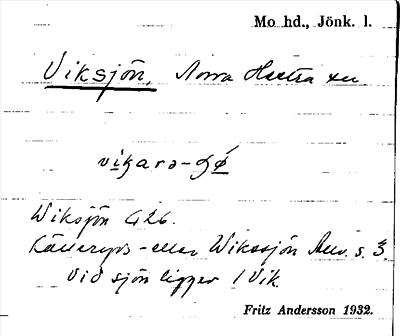 Mo hd., Jönk. l.
Viksjön, Norra Hestra sn
Wiksjön G26.
Källeryds- eller Wikssjön s. 3.
Vid sjön ligger 1 Vik.
Fritz Andersson 1932.